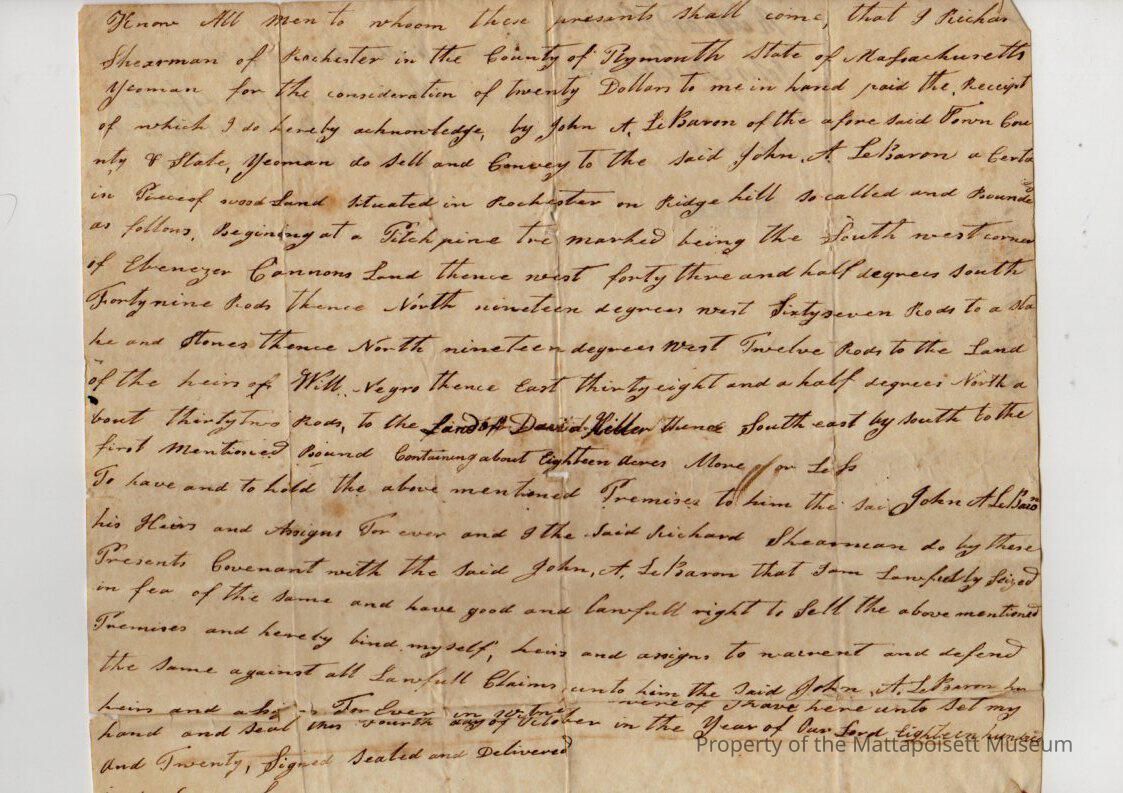 Know All men to whom these presents shall come, that I Richar
Shearman of Rochester in the County of Plymouth State of Massachusetts
Yeoman for the consideration of twenty Dollars to me in hand paid the Receipt
of which I do hereby acknowledge, by John A. LeBaron of the afore said Town Cou
nty & State, Yeoman do sell and Convey to the said John A LeBaron a Certa
in Piece of wood Land situated in Rochester on Ridge hill so called and Bounded
as follows, Begining at a Pitch pine tre marked being the South west corner
of Ebenezer Cannons Land thence west forty three and half degrees South
Forty nine Rods thence North nineteen degrees west Sixty seven Rods to a Sta
ke and Stones thence North nineteen degrees West Twelve Rods to the Land
of the heirs of Will Negro thence East thirty eight and a half degrees North a
bout thirty two Rods, to the Land of David Hiller thence South east by south to the
first Mentioned Bound Containing about Eighteen Acres More or Less
To have and to hold the above mentioned Premises to him the sai John A LeBaron
his Heirs and Assigns For ever and I the Said Richard Shearman do by these
Presents Covenant with the said John, A. LeBaron that I am Lawfully Seized
in fea of the same and have good and lawfull right to Sell the above mentioned
Premises and hereby bind myself, heirs and assigns to warent and defend
the same against all Lawfull Claims unto him the said John A. LeBaron his
heirs and For Ever in witness wereof I have here unto set my
hand and seal this fourth day of October in the Year of Our Lord Eighteen hundred
and Twenty, Signed Sealed and Delivered
Property of the Mattapoisett Museum